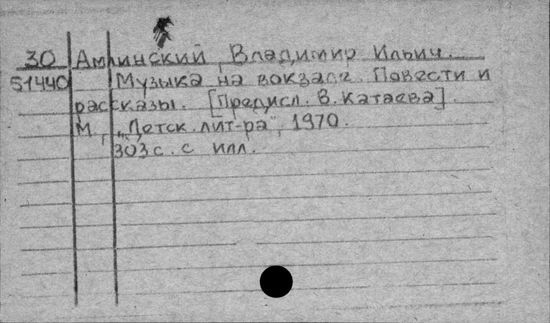 30 Амлинский, Владимир Ильич.
51440 Музыка на вокзале. Повести и
рассказы. [Предисл. В. Катаева].
М., „Детск. лит-ра", 1970.
303 с. с илл.